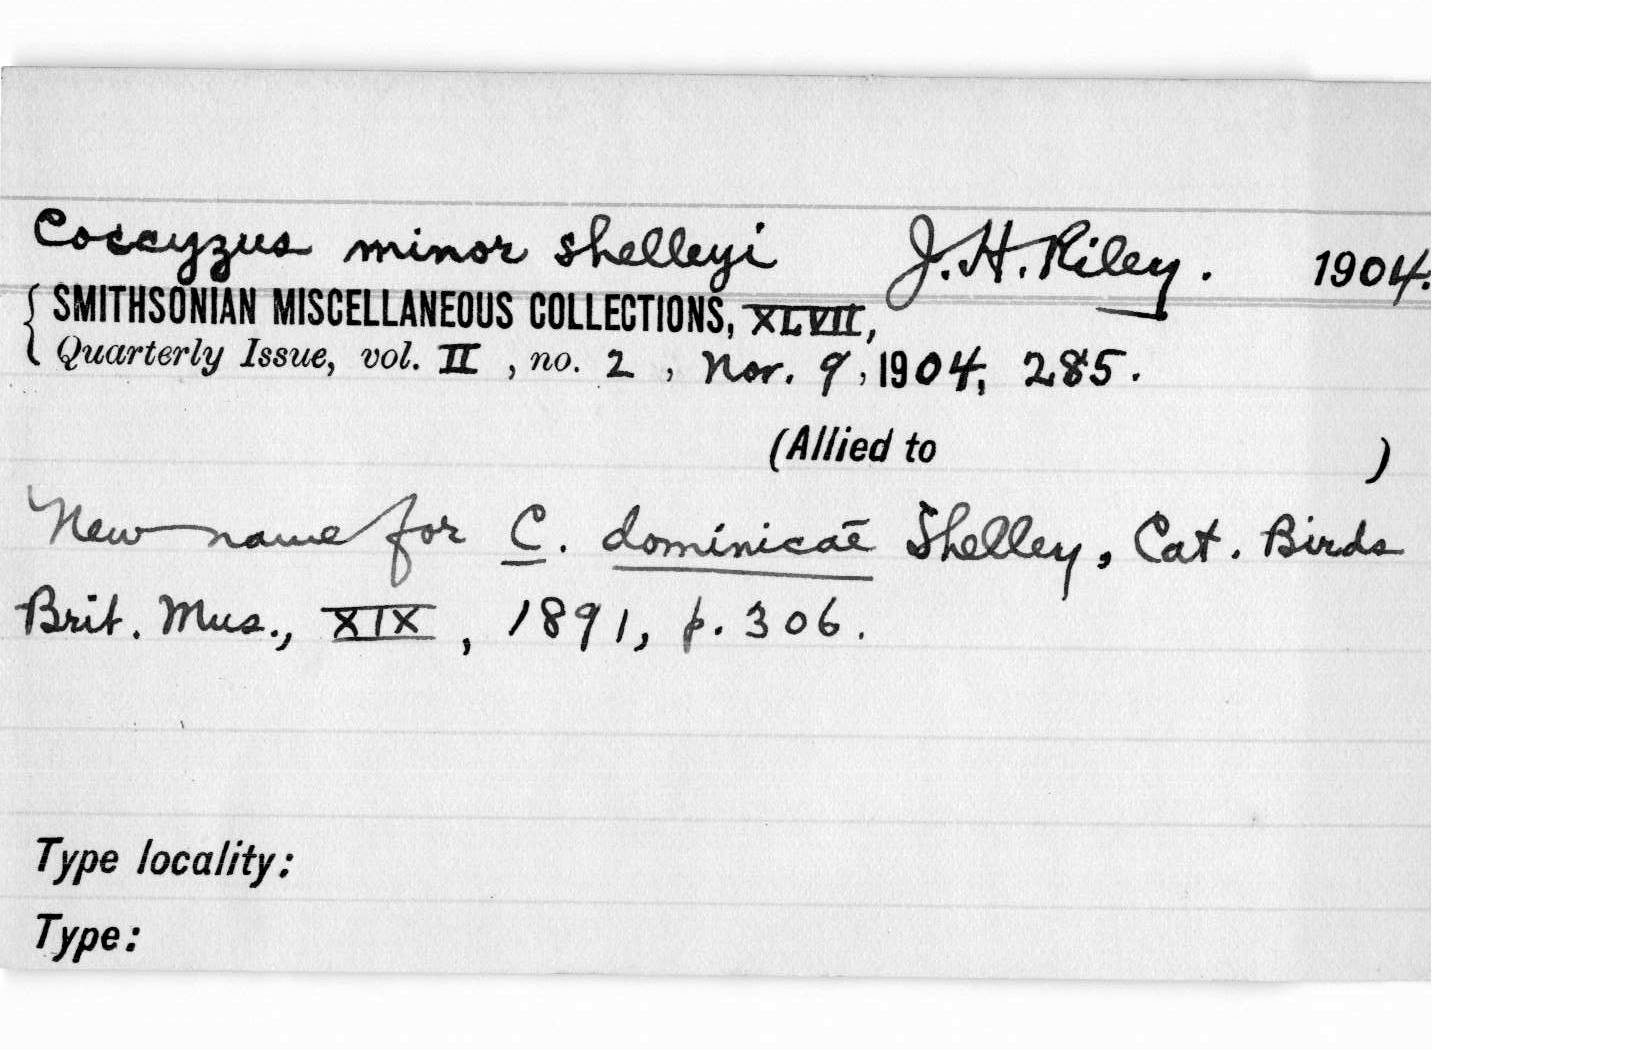 Coccyzus minor shelleyi J. H. Riley. 1904.
{ SMITHSONIAN MISCELLANEOUS COLLECTIONS, XLVII,
Quarterly Issue, vol. II , no. 2 , Nov. 9, 1904, 285.
(Allied to )
New name for C. dominicae Shelley, Cat. Birds
Brit. Mus., XIX, 1891, p. 306.
Type locality:
Type: